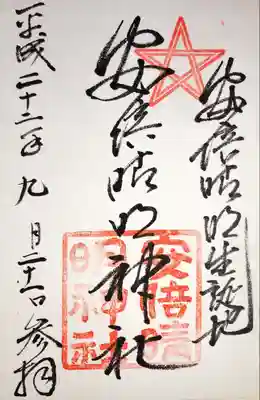 安倍晴明生誕地
安倍晴明神社
安倍晴明神社
平成二十二年九月二十一日参拝